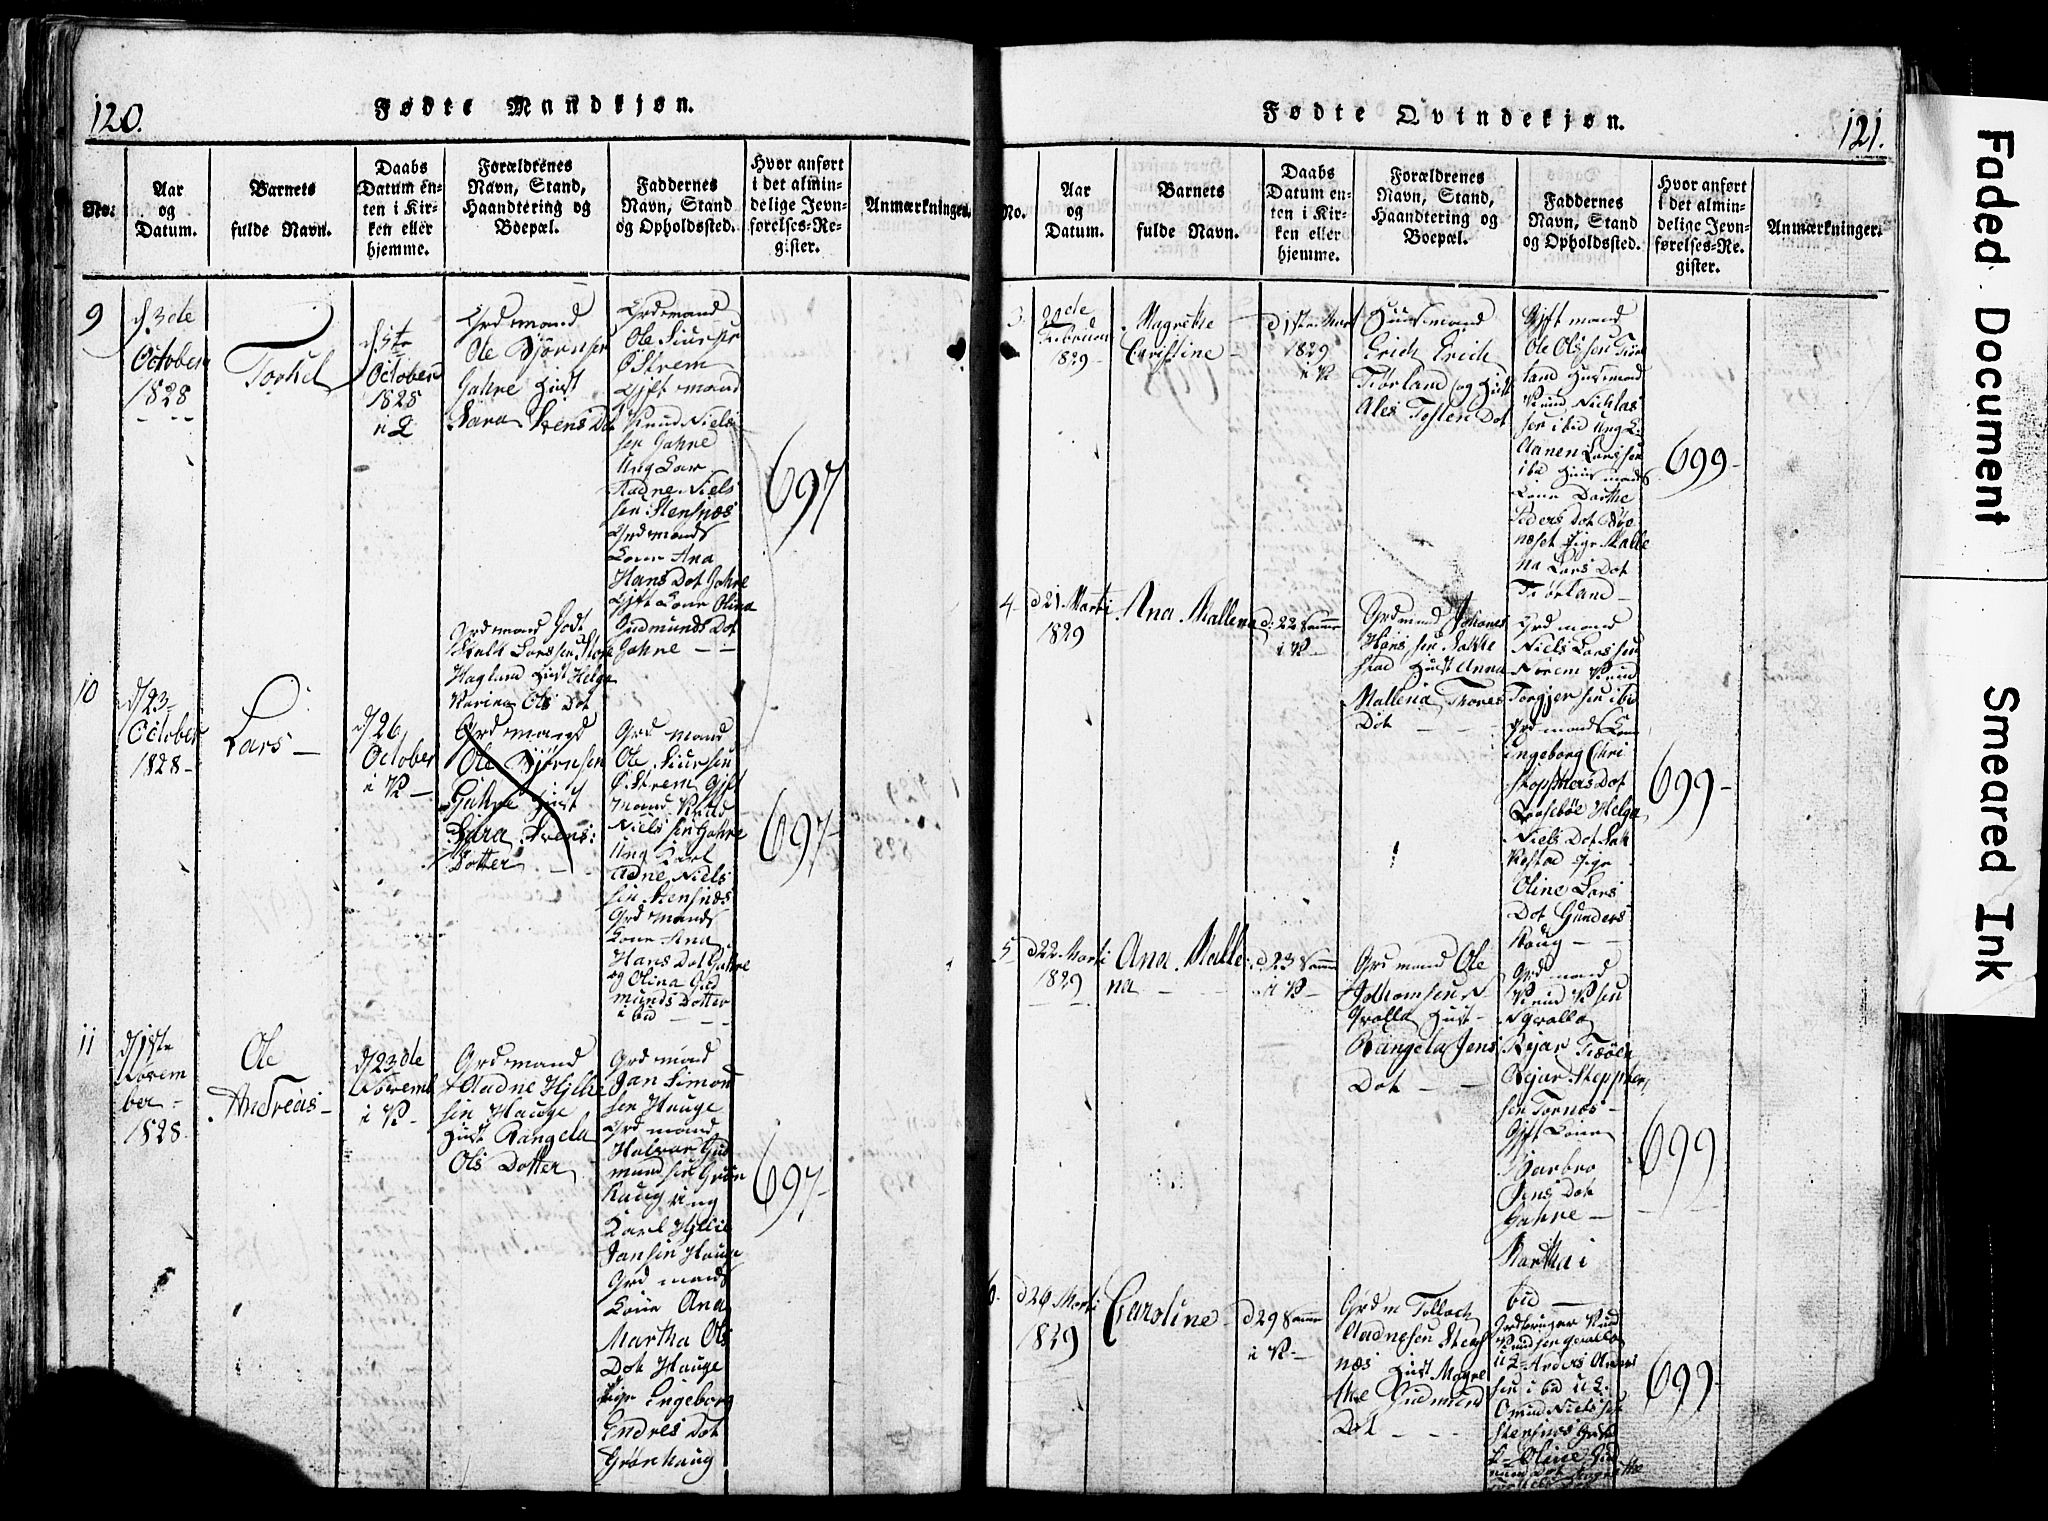 120.
Fødte Mandkjøn.
No.
Aar
og
Datum.
Barnets
fulde Navn.
Daabs
Datum en-
ten i Kir-
ken eller
hjemme.
Forældrenes
Navn, Stand,
Haandtering og
Boepæl.
Faddernes
Navn, Stand
og Opholdssted.
Hvor anført
i det almin-
delige Jevn-
førelses-Re-
gister.
Anmærkninger.
9
d. 3de
October
1828
Torkel
October
1828
Grdmand
Ole Bjørnsen
Gahre Hust
Sara Svens Dot
Grdmand
Ole Siursen
Østrem
Gift mand
Knud Niels
sen Gahre
Ung Kar
Aadne Niels
sen Stensnæs
Grdmands
Kone Ana
Hans Dot Gahre
Gift Kone Olina
Gudmunds Dot
Gahre
697
10
d. 23
October
1828
Lars
d. 26
October
i K
Grdmand Godt
Larssen Store
Haglund Hust Helga
Karina Ols Dot
Grdmand
Ole Bjørnsen
Gahre Hust
Sara Svens
Dotter
Grd mand
Ole Siursen
Østrem Gift
mand Knud
Niels sen Gahre
Ung Karl
Adne Niels
sen Stensnæs
Grd mands
Kone Ana
Hans Dot Gahre
og Olina Gud
munds Dotter
ibid
697
11
d. 18de
Novem
ber
1828
Ole
Andreas
d. 23de
Novemb
i K
Grdmand
Aadne Hjelle
sen Hauge
Hust Rangela
Ols Dotter
Grd mand
Jan Simon
sen Hauge
Grd mand
Halvor Gud
mundsen Grøn
haug ung
Karl Hjelle
Jansen Hauge
Grd mands
Kone Ana
Martha Ols
Dot Hauge
Pige Engeborg
Endres Dot
Grønhaug
697
Fødte Qvindekjøn.
121.
No.
Aar
og
Datum.
Barnets
fulde Navn.
Daabs
Datum en-
ten i Kir-
ken eller
hjemme.
Forældrenes
Navn, Stand,
Haandtering og
Boepæl.
Faddernes
Navn, Stand
og Opholdssted.
Hvor anført
i det almin-
delige Jevn-
førelses-Re-
gister.
Anmærkninger.
3
Februar
1829
Magrethe
Christine
d 1ste Mart
1829
i K
Huusmand
Erich Erich
Tiørland og Hust
Ales Tosten Dot
Gift mand
Ole Olssen Tiør
land Husmand
Knud Nichlas
sen ibid Ung K.
Aanen Larssen
ibd Huusmands
Kone Dorthe
Peders Dot
næset Pige Malle
na Lars Dot
Tiørland
699
4
d 21 Marti
1829
Ana Mallena
d. 22 Samme
i K
Grdmand Johanes
Hans sen Sakke
stad Hust Anna
Mallena Thores
Dot
Grd mand
Niels Larssen
Nørem Knud
Torgjersen ibid
Grd mands Kone
ingeborg Chri
stophhers Dot
Helga
Niels Dot Sak
kestad Pige
Oline Lars
Dot Gunders
haug
699
5
d 22 Marti
1829
Ana Malle
na
d. 23 Samme
i K
Grd mand Ole
Johansen
Qvalla Hust
Rangela Jens
Dot
Grd mand
Knud Knsen
Qvalla
Rejar
Rejar Stepphen
sen Tornes
Gift Kone
Barbro
Jens Dot
Gahre
Martha i
bid
699
6
d 26 Marti
1829
Caroline
d 29 Samme
i K
Grd m Tollach
Aadnesen Stens
næs Hust Magre
the Gudmund
Dot
Knud
Knudsen Qvalla
Anders
sen ibd u K.
Omund Nielssen
Stensnæs
Oline Gud
mund Dot
699
Faded Document
Smeared Ink